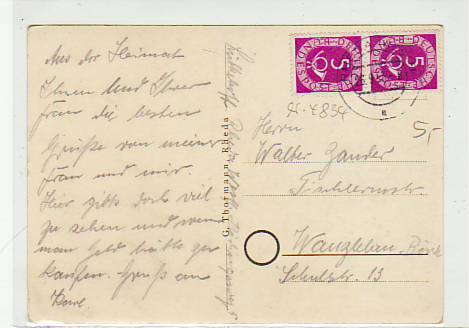 Aus der Heimat
Ihnen und Ihrer
Frau die besten
Grüße von meiner
Frau und mir.
Hier gibts doch viel
zu sehen und wenn
man Geld hätte zu
kaufen. Gruß an
Karl
G. Thormann, Rheda
5 DEUTSCHE BUNDESPOST
5 DEUTSCHE BUNDESPOST
5,-
Herrn
Walter Zander
Tischlermstr.
Wanzleben
Schulstr. 13